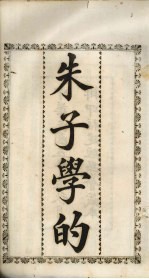 朱子學的